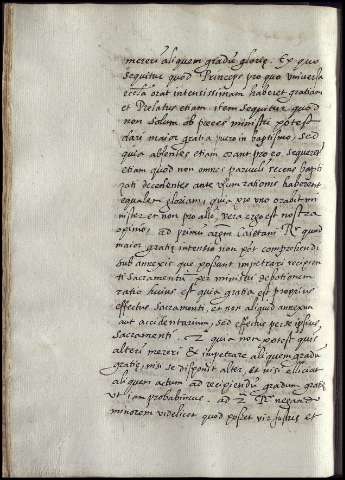 mereri aliquem gradũ glorię. Ex quo
sequitur quod Princeps pro quo vniversa
ecclᵃ orat intensissimam haberet gratiam
et Prelatus etiam. item sequitur quod
non solum ob preces ministri potest
dari maior gratia puero in baptismo, sed
quia absentes etiam orant pro eo, sequeret᷑
etiam quod non omnes paruuli recens bapti
zati decedentes ante vsum rationis haberent
equalem gloriam, quia pro vno orabit mi
nister et non pro alio, vera ergo est nostra
opinio, ad primũ argm̃ Caietani Rᵣ quod
maior gratię intensio non põt comprehendi
sub annexis que possunt impetrari recipien
ti Sacramentũ per ministri deuotionem
ratio huius est quia gratia est proprius
effectus Sacramenti, et non aliquid annexum
aut accidentarium, sed effectus per se ipsius
Sacramenti. 2. quia non potest quis
alteri mereri & impetrare aliquem gradũ
gratię, nisi se disponat alter, et nisi elliciat
aliquem actum ad recipiendũ gradum gratię
vt iam probabimus. ad 2ᵐ Rᵣ negando
minorem videlicet quod posset vir justus et